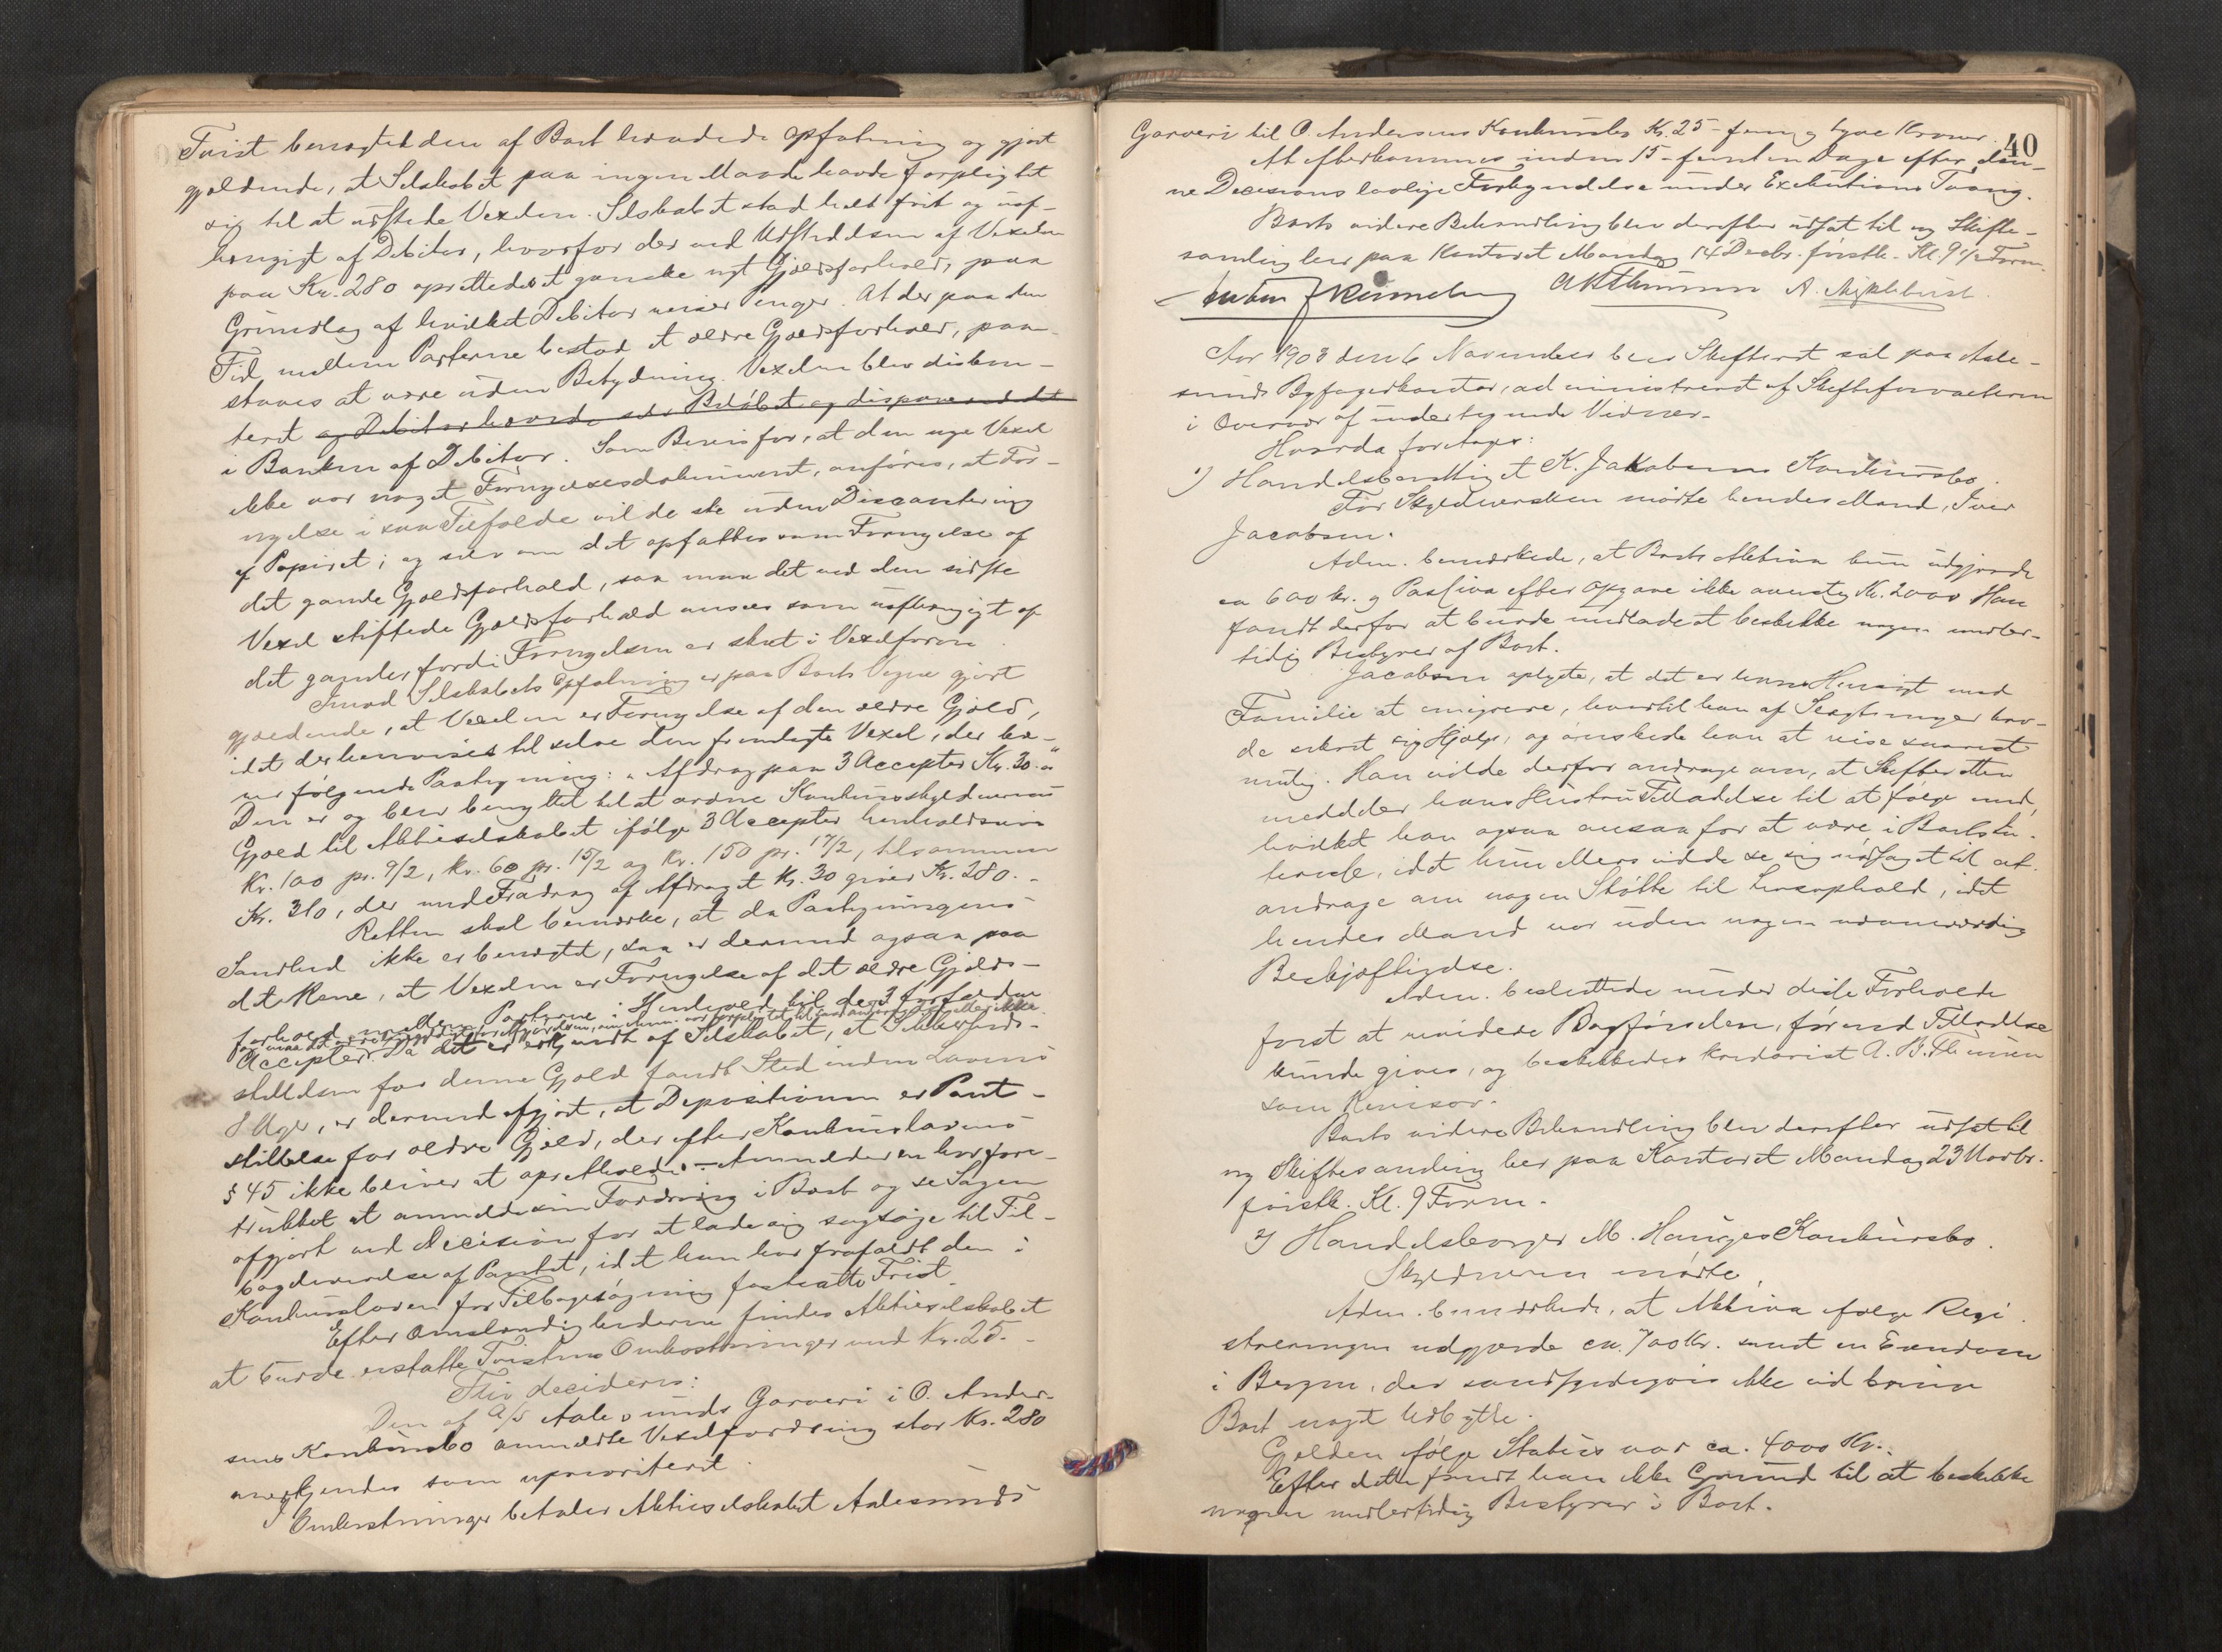 Tvist benegtet den af Boet hævdede Opfatning og gjort
gjældende, at Selskabet paa ingen Maade havde forpligtet
sig til at udstede Vexelen. Selskabet stod helt frit og uaf-
hængigt af Debitor, hvorfor der ved Udstedelsen af Vexelen
paa Kr. 280 oprettedes et ganske nyt Gjældsforhold, paa
Grundlag af hvilket Debitor reiser Penger. At der paa den
Tid mellem Parterne bestod et ældre Gjældsforhold, paa-
staaes at være uden Betydning. Vexelen blev diskon-
teret og Debitor hævede selv Beløbet og disponerede det
i Banken af Debitor. Som Bevis for, at den nye Vexel
ikke var noget Fornyelsesdokument, anføres, at For-
nyelse i saa Tilfælde vilde ske uden Discontering
af Papiret; og selv om det opfattes som Fornyelse af
det gamle Gjældsforhold, saa maa det ved den sidste
Vexel stiftede Gjældsforhold ansees som uafhængigt af
det gamle, fordi Fornyelsen er sket i Vexelform.
Imod Selskabets Opfatning er paa Boets Vegne gjort
gjældende, at Vexelen er Fornyelse af den ældre Gjæld,
idet der henvises til selve den fremlagte Vexel, der bæ-
rer følgende Paategning: "Afdrag paa 3 Accepter Kr. 30.-"
Den er og blev benyttet til at ordne Konkursskyldnerens
Gjæld til Aktieselskabet ifølge 3 Accepter henholdsvis
Kr. 100 pr. 9/2, Kr. 60 pr. 15/2 og Kr. 150 pr. 17/2, tilsammen
Kr. 310, der med Fradrag af Afdraget Kr. 30 giver Kr. 280.-
Retten skal bemærke, at da Paategningens
Sandhed ikke er benegtet, saa er dermed ogsaa paa
det Rene, at Vexelen er Fornyelse af det ældre Gjælds-
forhold mellem Parterne i Henhold til de 3 forfaldne
Accepter. Da det er erkjendt af Selskabet, at Sikkerheds-
stillelsen for denne Gjæld fandt Sted inden Lovens
8 Uger, er dermed afgjort, at Depositionen er Pant-
stillelse for ældre Gjæld, der efter Konkurslovens
§ 45 ikke bliver at opretholde. – Anmelderen har fore-
trukket at anmelde sin Fordring i Boet og se Sagen
afgjort ved Decision for at lade sig sagsøge til Til-
bageleverelse af Pantet, idet han har frafaldt den i
Konkursloven for Tilbagesøgning fastsatte Frist.
Efter Omstændighederne findes Aktieselskabet
at burde erstatte Tvistens Omkostninger med Kr. 25.-
Thi decideres:
Den af A/S Aalesunds Garveri i O. Ander-
sens Konkursbo anmeldte Vexelfordring stor Kr. 280
anerkjendes som uprioriteret.
I Omkostninger betaler Aktieselskabet Aalesunds
40
Garveri til O. Andersens Konkursbo Kr. 25 – fem og tyve Kroner.
At efterkommes inden 15 – femten Dage efter den-
ne Decisions lovlige Forkyndelse under Exekutions Tvang.
Boets videre Behandling blev derefter udsat til ny Skifte-
samling her paa Kontoret Mandag 14 Decbr. førstk. Kl. 9 1/2 Form.
A. Myklebust.
Aar 1903 den 6 November blev Skifteret sat paa Aale-
sunds Byfogedkontor, administreret af Skifteforvalteren
i Overvær af undertegnede Vidner.
Hvorda foretoges:
1) Handelsberettiget K. Jakobsens Konkursbo.
For Skyldnersken mødte hendes Mand, Iver
Jacobsen.
Adm. bemærkede, at Boets Aktiva kun udgjorde
ca 600 kr. og Passiva efter Opgave ikke oversteg Kr. 2000. Han
fandt derfor at burde undlade at beskikke nogen midler-
tidig Bestyrer af Boet.
Jacobsen oplyste, at det er hans Hensigt med
Familie at emigrere, hvortil han af Slægtninger hav-
de sikret sig Hjælp, og ønskede han at reise snarest
mulig. Han vilde derfor andrage om, at Skifteretten
meddeler hans Hustru Tilladelse til at følge med,
hvilket han ogsaa ansaa for at være i Boets In-
teresse, idet hun ellers vilde se sig nødsaget til at
andrage om nogen Støtte til Livsophold, idet
hendes Mand var uden nogen nævneværdig
Beskjæftigelse.
Adm. besluttede under disse Forholde
først at revidere Bogførselen, førend Tilladelse
kunde gives, og beskikkedes Kredorist A. B. Thunem
som Revisor.
Boets videre Behandling blev derefter udsat til
ny Skiftesamling her paa Kontoret Mandag 23 Novbr.
førstk. Kl. 9 Form.
2) Handelsborger M. Hauges Konkursbo.
Skyldneren mødte.
Adm. bemærkede, at Aktiva ifølge Regi-
streringen udgjorde ca. 700 Kr. samt en Eiendom
i Bergen, der sandsynligvis ikke vil bringe
Boet noget Udbytte.
Gjælden ifølge Status var ca. 4000 Kr.
Efter dette fandt han ikke Grund til at beskikke
nogen midlertidig Bestyrer i Boet.